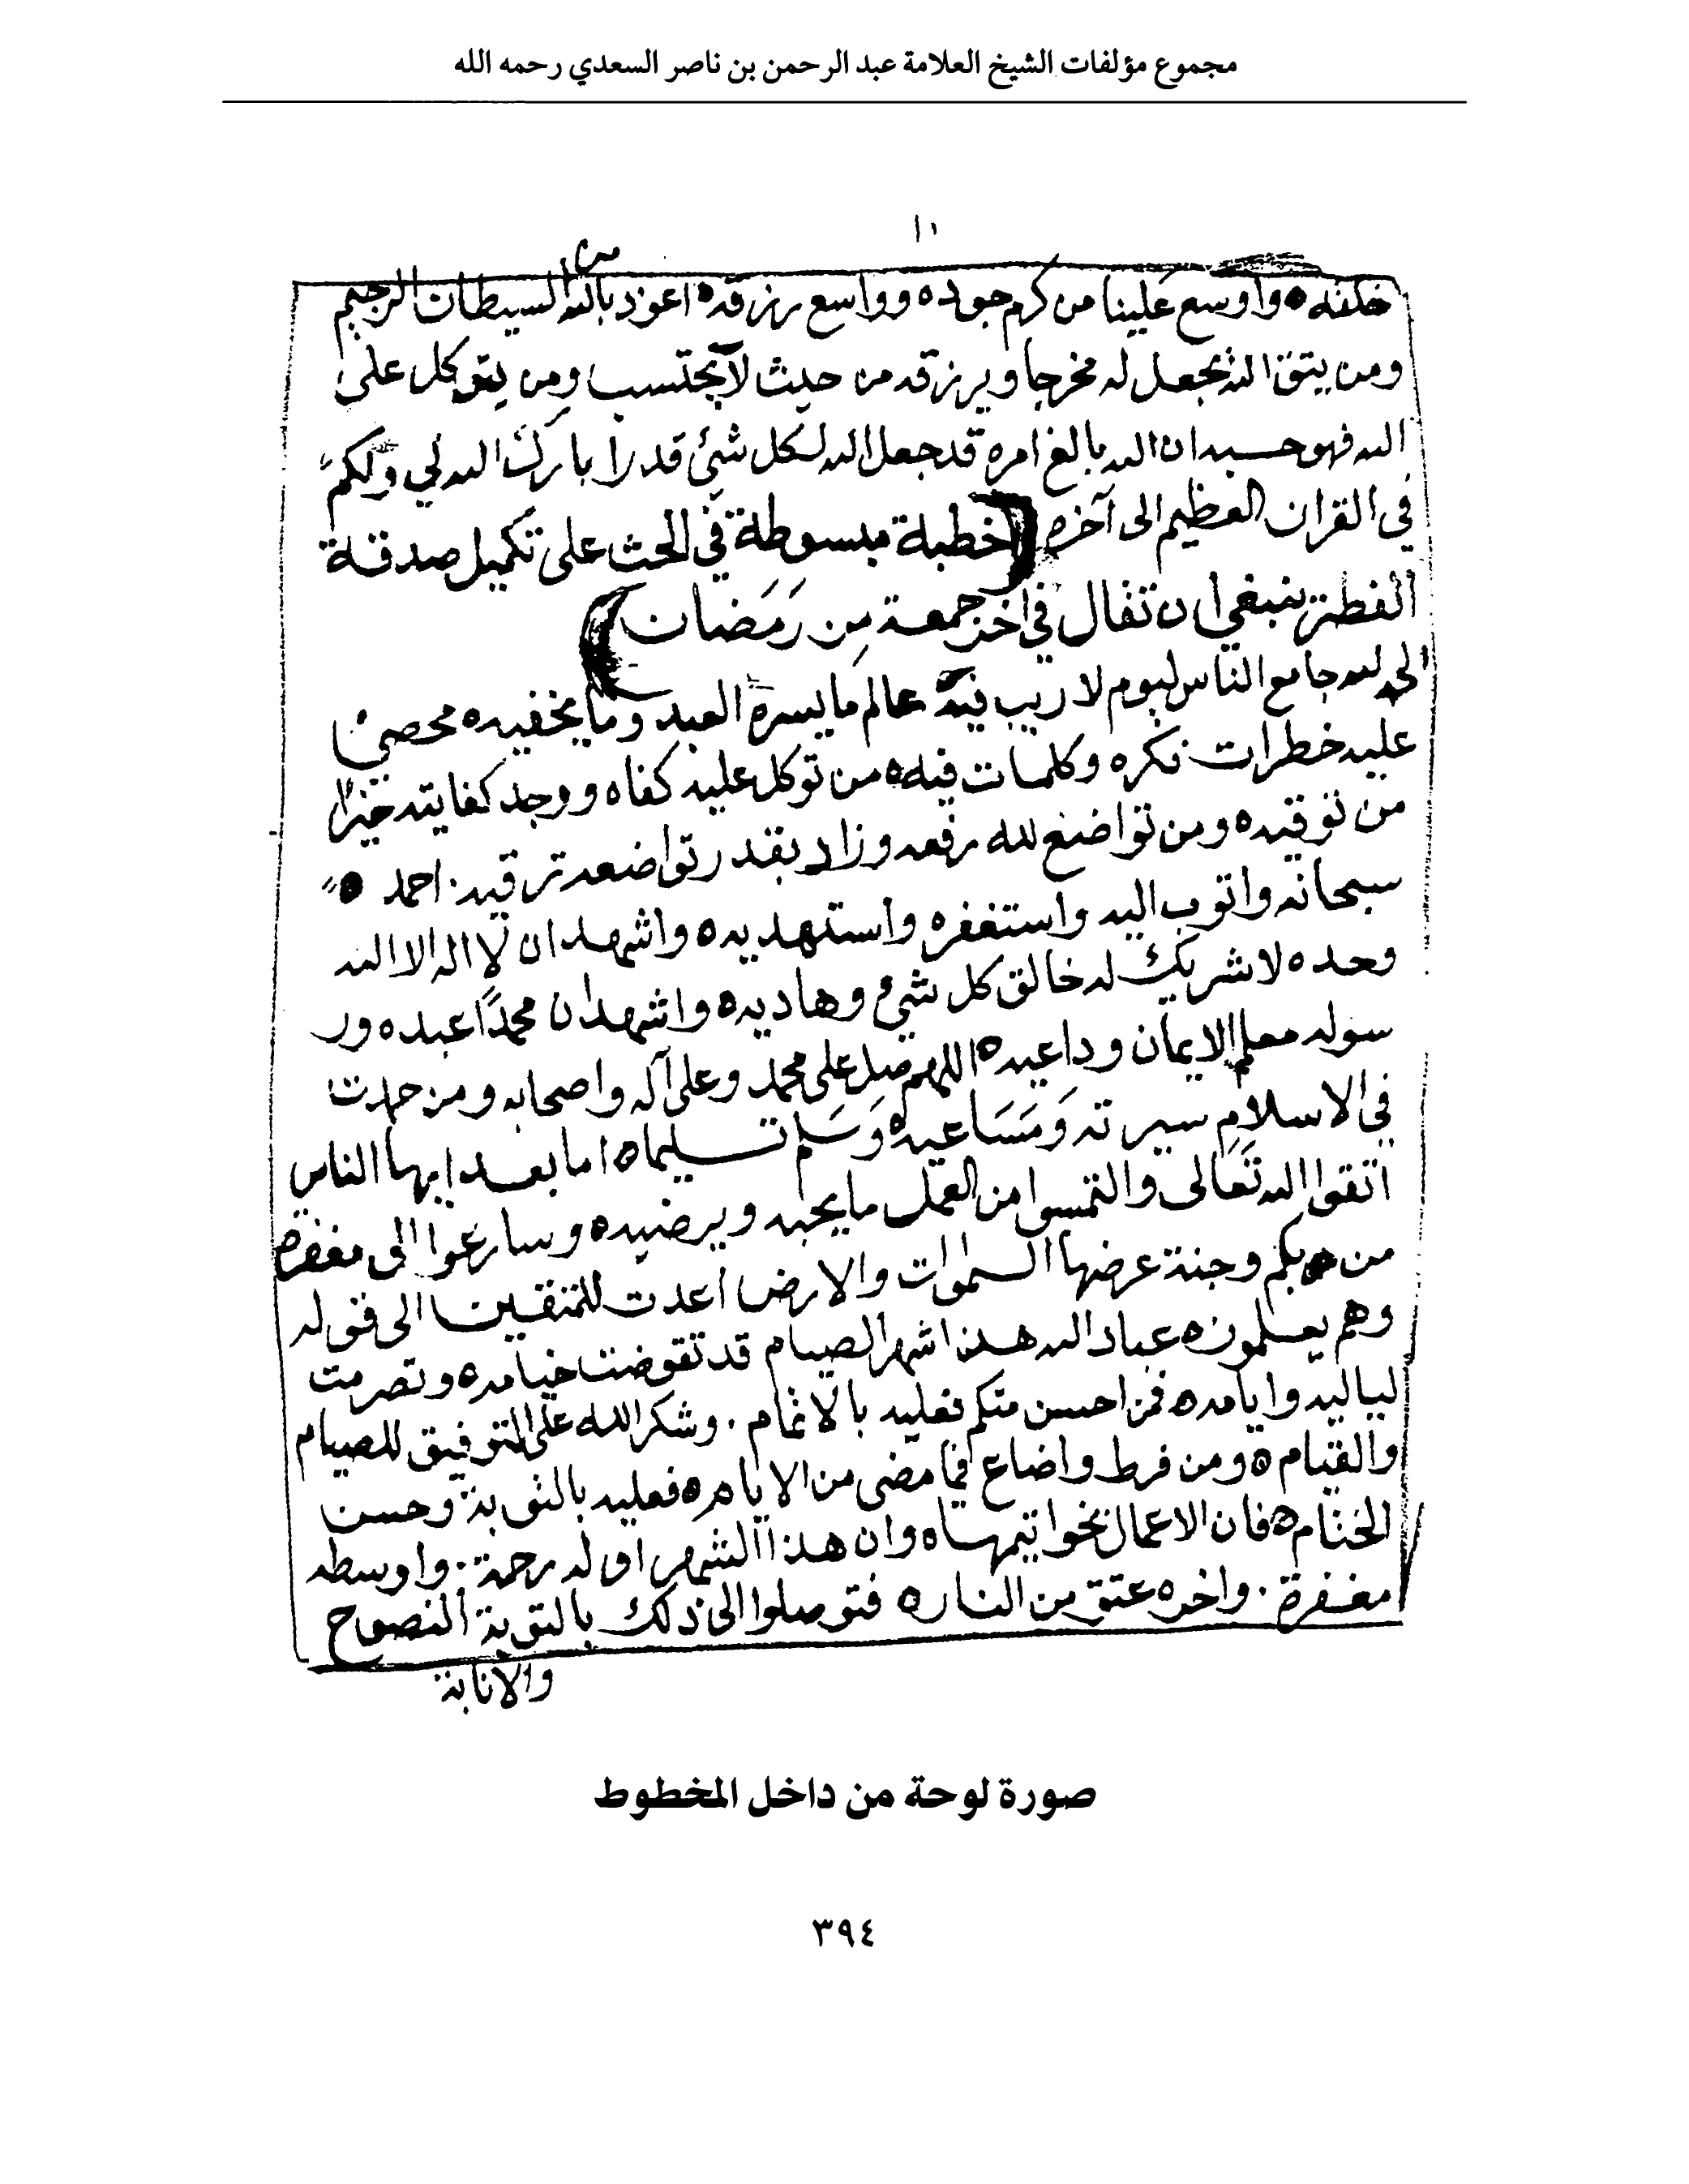 مجموع مؤلفات الشيخ العلامة عبد الرحمن بن ناصر السعدي رحمه الله
١٠
خلقه ٥ واوسع علينا من كرم جوده ٥ وواسع رزقه ٥ اعوذ بالله من الشيطان الرجيم
ومن يتق الله يجعل له مخرجا ويرزقه من حيث لا يحتسب ومن يتوكل على
الله فهو حسبه ان الله بالغ امره قد جعل الله لكل شيئ قدرا بارك الله لي ولكم
في القران العظيم الى آخره (خطبة مبسوطة في الحث على تكميل صدقة
الفطرة ينبغي ان تقال في اخر جمعة مِن رَمَضان)
الحمد لله جامع الناس ليوم لا ريب فيه عالم ما يسره العبد وما يخفيه ٥ محصيٍ
عليه خطرات فكره وكلمات فيه ٥ من توكل عليه كفاه ووجد كفايته خيرًا
من توقيه ٥ ومن تواضع لله رفعه وزاد بقدر تواضعه ترقيه . احمد ٥
سبحانه واتوب اليه واستغفره واستهديه ٥ واشهد ان لا اله الا الله
وحده لا شريك له خالق كل شيء وهاديه ٥ واشهد ان محمدًا عبده ور
سوله معلم الايمان وداعيه ٥ اللهم صل على محمد وعلى آله واصحابه ومن حمدت
في الاسلام سيرته وَمَسَاعيه ٥ وَسَلم تسليما ٥ اما بعد ايها الناس
اتقوا الله تعالى والتمسوا من العمل ما يحبه ويرضيه ٥ وسارعوا الى مغفرة
من ربكم وجنة عرضها السموات والارض اعدت للمتقين الى قوله
وهم يعلمون ٥ عباد الله هذا شهر الصيام قد تقوضت خيامه ٥ وتصرمت
لياليه وايامه ٥ فمن احسن منكم فعليه بالاتمام . وشكر الله على التوفيق للصيام
والقيام ٥ ومن فرط واضاع فيما مضى من الايام ٥ فعليه بالتوبة وحسن
الختام ٥ فان الاعمال بخواتيمها ٥ وان هذا الشهر اوله رحمة . واوسطه
مغفرة . واخره عتق من النار ٥ فتوصلوا الى ذلك بالتوبة النصوح
والانابة
صورة لوحة من داخل المخطوط
٣٩٤